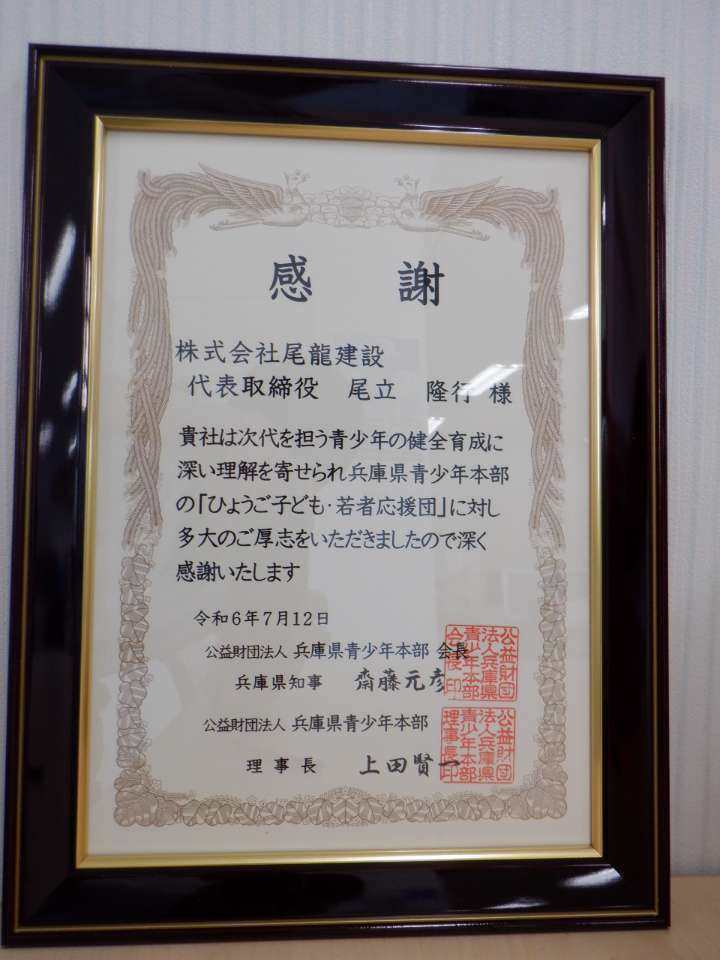 感謝
株式会社尾龍建設
代表取締役 尾立 隆行 様
貴社は次代を担う青少年の健全育成に
深い理解を寄せられ兵庫県青少年本部
の「ひょうご子ども・若者応援団」に対し
多大のご厚志をいただきましたので深く
感謝いたします
令和6年7月12日
公益財団法人 兵庫県青少年本部 会長
兵庫県知事 齋藤元彦
公益財団法人兵庫県青少年本部会長印
公益財団法人 兵庫県青少年本部
理事長 上田賢一
公益財団法人兵庫県青少年本部理事長印